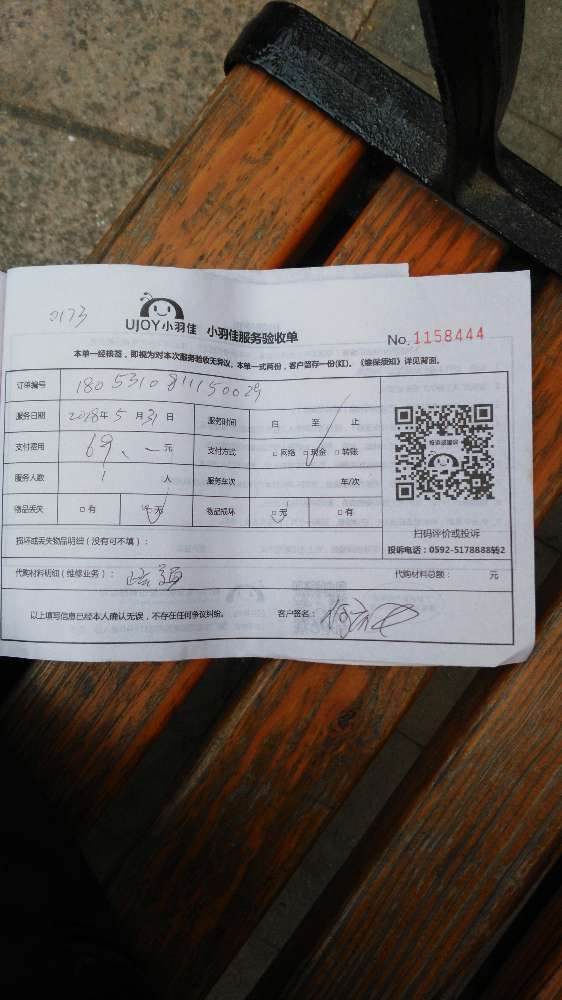 0173
UJOY小羽佳 小羽佳服务验收单
No. 1158444
本单一经核签，即视为对本次服务验收无异议。本单一式两份，客户留存一份(红)。《维保须知》详见背面。
订单编号 180531081115002
服务日期 2018年5月31日 服务时间 自 至 止
支付费用 69、一元 支付方式 □网络 □现金 □转账
服务人数 1 人 服务车次 车/次
物品丢失 □有 □无 物品损坏 □无 □有
投诉或建议
扫码评价或投诉
投诉电话：0592-5178888转2
损坏或丢失物品明细（没有可不填）：
代购材料明细（维修业务）： 代购材料总额： 元
以上填写信息已经本人确认无误，不存在任何争议纠纷。 客户签名：